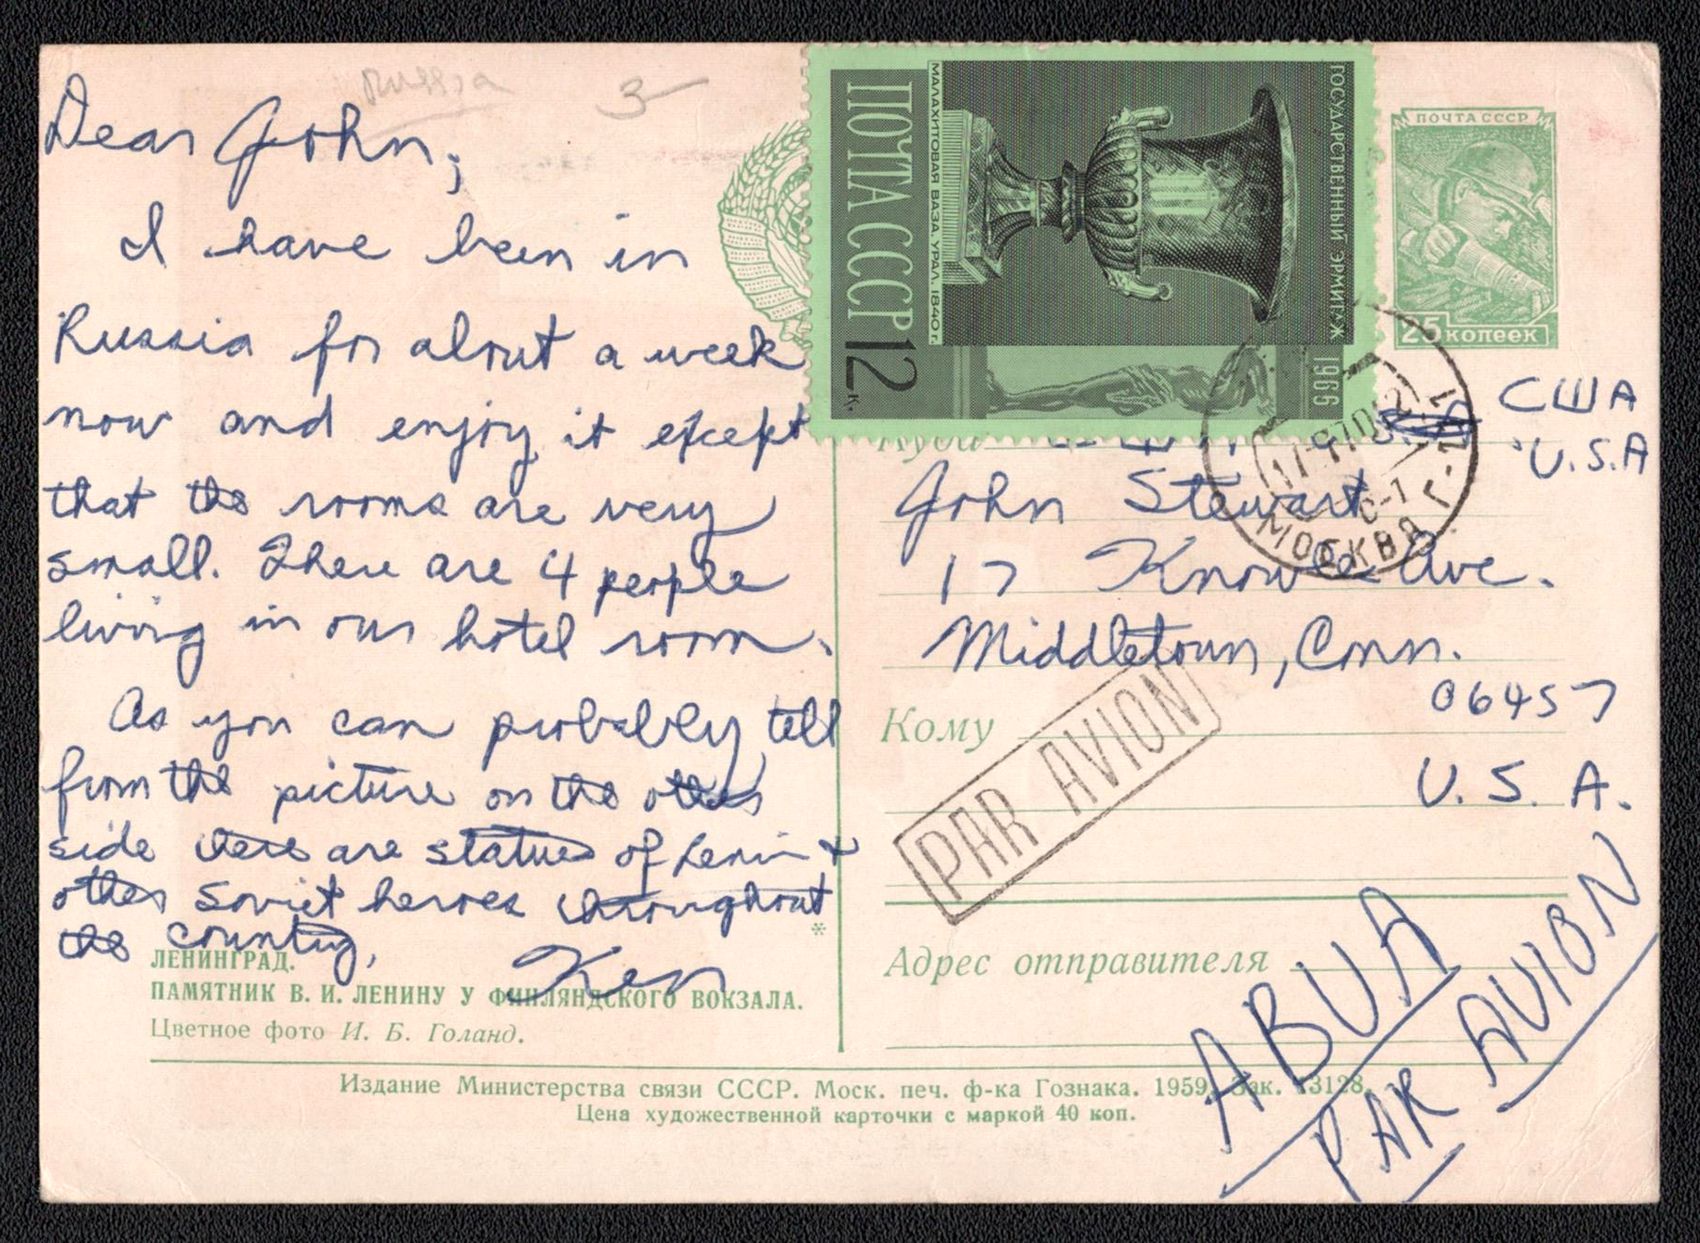 Russia 3-
Dear John,
I have been in
Russia for about a week
now and enjoy it except
that the rooms are very
small. There are 4 people
living in our hotel room.
As you can probably tell
from the picture on the other
side there are statues of Lenin +
other Soviet heroes throughout
the country.
Ken
ЛЕНИНГРАД.
ПАМЯТНИК В. И. ЛЕНИНУ У ФИНЛЯНДСКОГО ВОКЗАЛА.
Цветное фото И. Б. Голанд.
ГОСУДАРСТВЕННЫЙ ЭРМИТАЖ
1966
МАЛАХИТОВАЯ ВАЗА. УРАЛ. 1840 г.
ПОЧТА СССР 12 к.
ПОЧТА СССР
25 копеек
МОСКВА Г-21
Куда
США
U.S.A
John Stewart
17 Knowles Ave.
Middletown, Conn.
06457
Кому
U. S. A.
PAR AVION
Адрес отправителя
АВИА
PAR AVION
Издание Министерства связи СССР. Моск. печ. ф-ка Гознака. 1959. Зак. 13128.
Цена художественной карточки с маркой 40 коп.